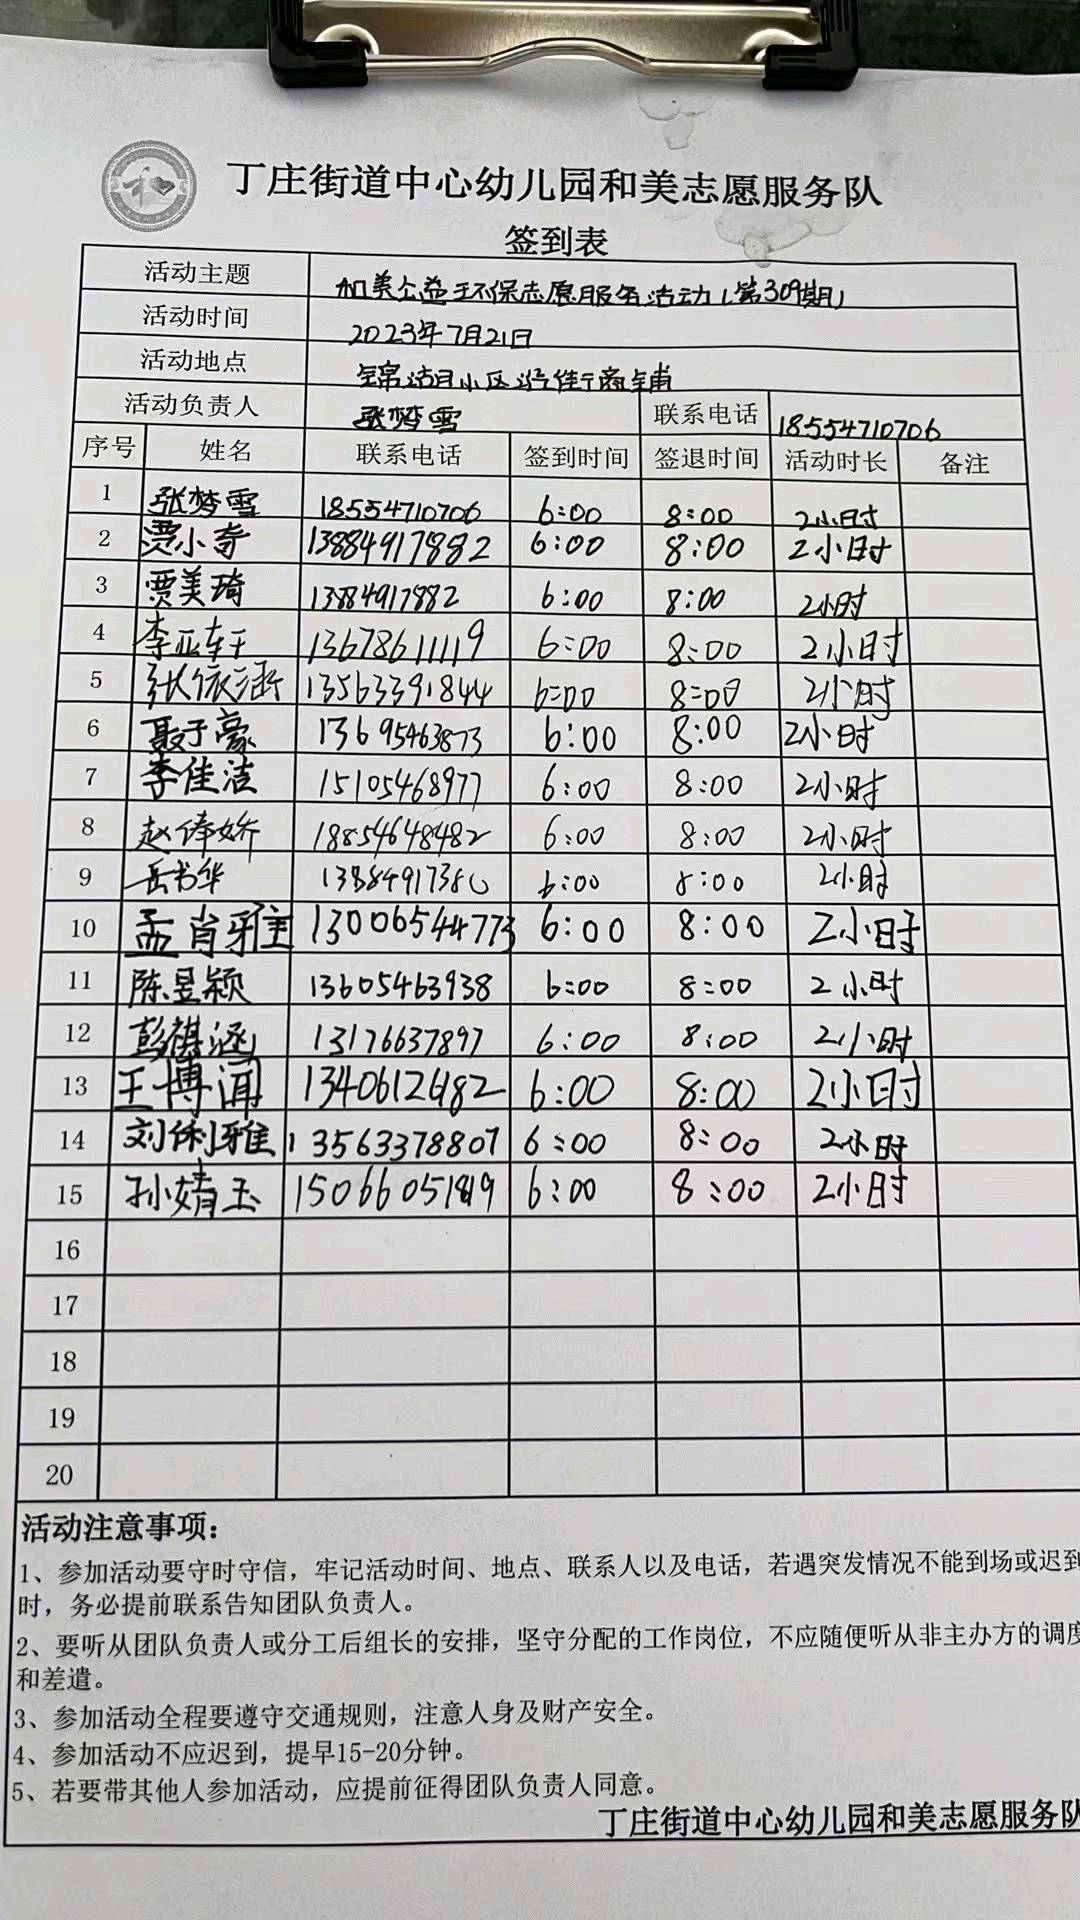 丁庄街道中心幼儿园和美志愿服务队
签到表
活动主题 和美公益环保志愿服务活动(第309期)
活动时间 2023年7月21日
活动地点 锦湖小区沿街商铺
活动负责人 张梦雪 联系电话 18554710706
序号 姓名 联系电话 签到时间 签退时间 活动时长 备注
1 张梦雪 18554710706 6:00 8:00 2小时
2 贾小奇 13884917882 6:00 8:00 2小时
3 贾美琦 13884917882 6:00 8:00 2小时
4 李亚轩 13678611119 6:00 8:00 2小时
5 张依涵 13563391844 6:00 8:00 2小时
6 聂于豪 13695463873 6:00 8:00 2小时
7 李佳洁 15105468977 6:00 8:00 2小时
8 赵倖娇 18854648482 6:00 8:00 2小时
9 岳书华 6:00 8:00 2小时
10 孟肖雅 13006544773 6:00 8:00 2小时
11 陈昱颖 13605463938 6:00 8:00 2小时
12 彭祺涵 13176637897 6:00 8:00 2小时
13 王博闻 6:00 8:00 2小时
14 刘俐雅 13563378807 6:00 8:00 2小时
15 孙婧玉 6:00 8:00 2小时
16
17
18
19
20
活动注意事项：
1、参加活动要守时守信，牢记活动时间、地点、联系人以及电话，若遇突发情况不能到场或迟到
时，务必提前联系告知团队负责人。
2、要听从团队负责人或分工后组长的安排，坚守分配的工作岗位，不应随便听从非主办方的调度
和差遣。
3、参加活动全程要遵守交通规则，注意人身及财产安全。
4、参加活动不应迟到，提早15-20分钟。
5、若要带其他人参加活动，应提前征得团队负责人同意。
丁庄街道中心幼儿园和美志愿服务队